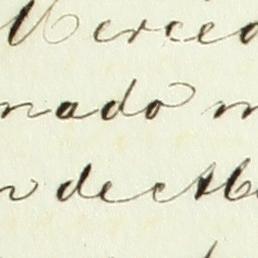 Merced
nado m
n de Ab